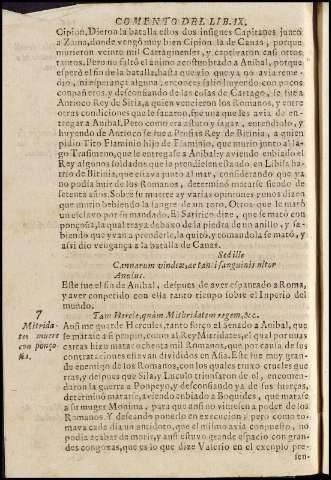 COMENTO DEL LIB. IX.
Cipion. Dieron la batalla estos dos insignes Capitanes junto
a Zama, donde vengò muy bien Cipion la de Canas, porque
murieron veinte mil Cartaginenses, y captivaron casi otros
tantos. Pero no faltò el animo acostumbrado a Anibal, porque
esperò el fin de la batalla, hasta que vio que ya no avia reme-
dio, ni esperança alguna, entonces salio huyendo, con pocos
compañeros, y desconfiando de las cosas de Cartago, se fue a
Antioco Rey de Siria, a quien vencieron los Romanos, y entre
otras condiciones que le sacaron, fue una que les avia de en-
tregar a Anibal. Pero como era astuto y sagaz, entendiolo, y
huyendo de Antioco se fue a Prusias Rey de Bitinia, a quien
pidio Tito Flaminio hijo de Flaminio, que murio junto al la-
go Trasimeno, que le entregasse a Anibal y aviendo embiado el
Rey algunos soldados que lo prendiessen estando en Libisa ba-
rrio de Bitinia, que estava junto al mar, considerando que ya
no podia huir de los Romanos, determinò matarse siendo de
setenta años. Sobre su muerte ay varias opiniones, pues dizen
que murio bebiendo la sangre de un toro. Otros que le matò
un esclavo por su mandado. El Satirico dize, que se matò con
ponçoña, la qual traya debaxo de la piedra de un anillo, y sa-
biendo que yvan a prenderle, la quitò, y tomandola se matò, y
assi dio vengança a la batalla de Canas.
Sed ille
Cannarum vindex, ac tanti sanguinis ultor
Anulus.
Este fue el fin de Anibal, despues de aver espantado a Roma,
y aver competido con ella tanto tiempo sobre el Imperio del
mundo.
7 Tam Hercle, quàm Mithridatem regem, &c.
Mitrida-
tes muere
con ponço-
ña.
Ansi me guarde Hercules, tanto forço el Senado a Anibal, que
se matasse a si propio, como al Rey Mitridates, el qual por unas
cartas hizo matar ochenta mil Romanos, que por causa de sus
contrataciones estavan divididos en Asia. Este fue muy gran-
de enemigo de los Romanos, con los quales truxo crueles gue
rras, y despues que Sila, y Luculo triunfaron de el, encomen-
daron la guerra a Pompeyo, y desconfiando ya de sus fuerças,
determinò matarse, aviendo embiado a Boquides, que matasse
a su muger Monima, para que ansi no viniessen a poder de los
Romanos. Y deseando ponerlo en execucion, pero como to-
mava cada dia un antidoto, que el mismo avia conpuesto, no
podia acabar de morir, y ansi estuvo grande espacio con gran-
des congoxas, que es lo que dize Valerio en el exemplo pre
sen-